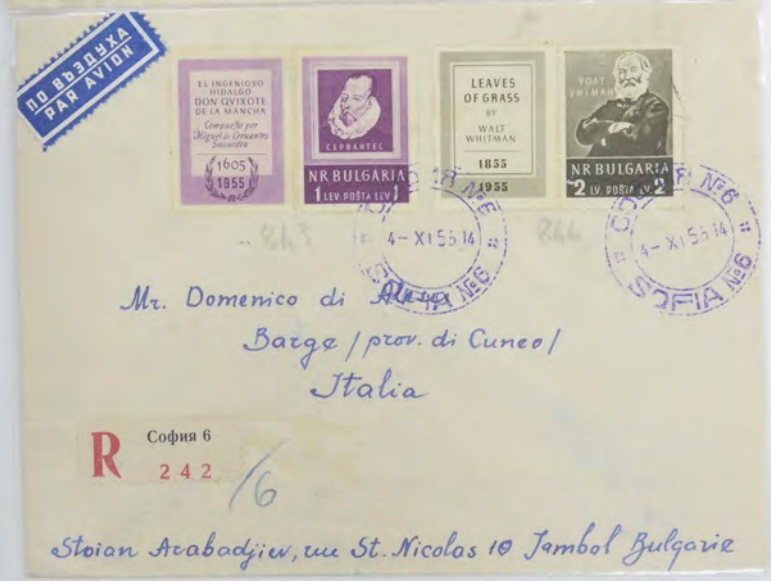 ПО ВЪЗДУХА
PAR AVION
EL INGENIOSO
HIDALGO
DON QVIXOTE
DE LA MANCHA
Compuesto por
Miguel de Cervantes
Saavedra
1605
1955
СЕРВАНТЕС
NR BULGARIA
1 LEV POŠTA LEV 1
LEAVES
OF GRASS
BY
WALT
WHITMAN
1855
1955
УОЛТ
УИТМАН
NR BULGARIA
2 LV. POŠTA LV. 2
843
844
№6
4-XI 55 14
SOFIA №6
№6
4-XI 55 14
SOFIA №6
Mr. Domenico di
Barge /prov. di Cuneo/
Italia
R
София 6
242
/6
Stoian Arabadjiev, rue St. Nicolas 10 Jambol Bulgarie